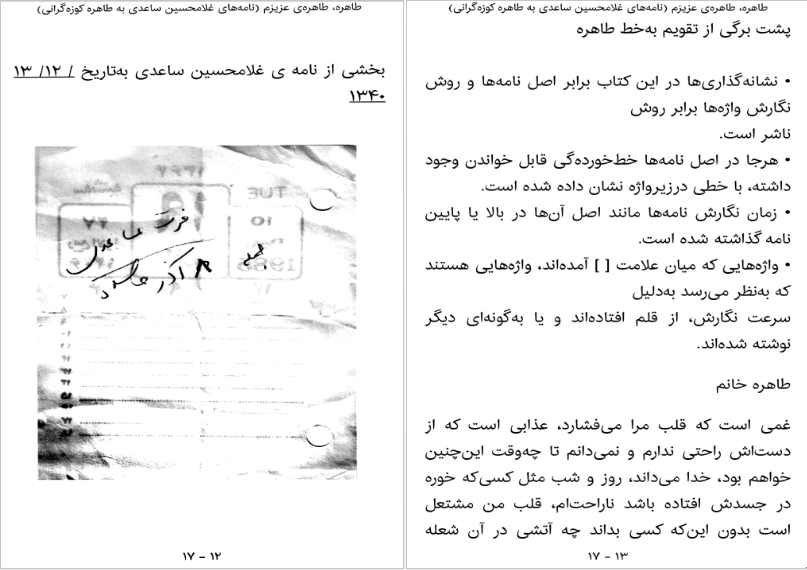 طاهره، طاهره‌ی عزیزم (نامه‌های غلامحسین ساعدی به طاهره کوزه‌گرانی)
پشت برگی از تقویم به‌خط طاهره
• نشانه‌گذاری‌ها در این کتاب برابر اصل نامه‌ها و روش
نگارش واژه‌ها برابر روش
ناشر است.
• هرجا در اصل نامه‌ها خط‌خورده‌گی قابل خواندن وجود
داشته، با خطی درزیرواژه نشان داده شده است.
• زمان نگارش نامه‌ها مانند اصل آن‌ها در بالا یا پایین
نامه گذاشته شده است.
• واژه‌هایی که میان علامت [ ] آمده‌اند، واژه‌هایی هستند
که به‌نظر می‌رسد به‌دلیل
سرعت نگارش، از قلم افتاده‌اند و یا به‌گونه‌ای دیگر
نوشته شده‌اند.
طاهره خانم
غمی است که قلب مرا می‌فشارد، عذابی است که از
دست‌اش راحتی ندارم و نمی‌دانم تا چه‌وقت این‌چنین
خواهم بود، خدا می‌داند، روز و شب مثل کسی‌که خوره
در جسدش افتاده باشد ناراحت‌ام، قلب من مشتعل
است بدون این‌که کسی بداند چه آتشی در آن شعله
۱۷ - ۱۳
طاهره، طاهره‌ی عزیزم (نامه‌های غلامحسین ساعدی به طاهره کوزه‌گرانی)
بخشی از نامه ی غلامحسین ساعدی به‌تاریخ / ۱۲/ ۱۳
۱۳۴۰
TUE
10
۱۷ - ۱۲